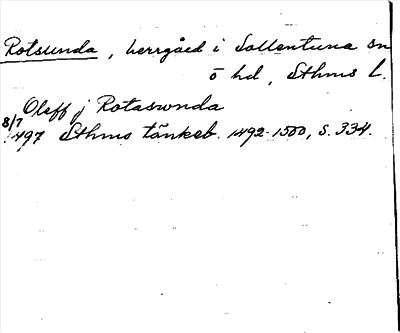 Rotsunda, herrgård i Sollentuna sn
ö hd, Sthms l.
Oleff j Rotaswnda
8/7 1497 Sthms tänkeb. 1492-1500, s. 334.